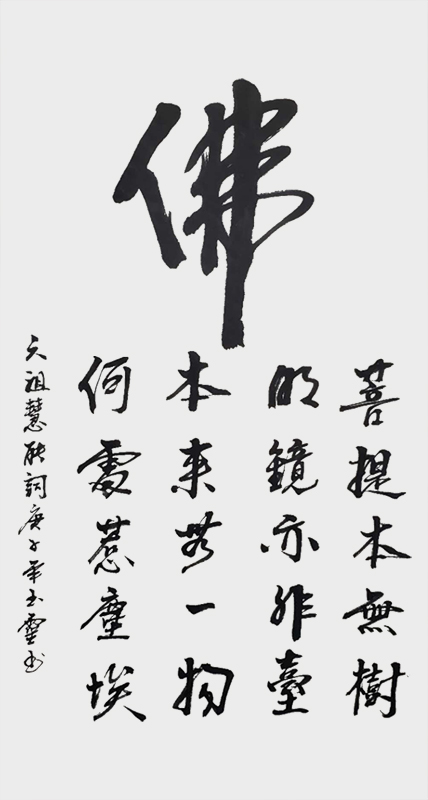 佛
菩提本無樹
明鏡亦非臺
本来無一物
何處惹塵埃
六祖慧能詞庚子年玉靈书